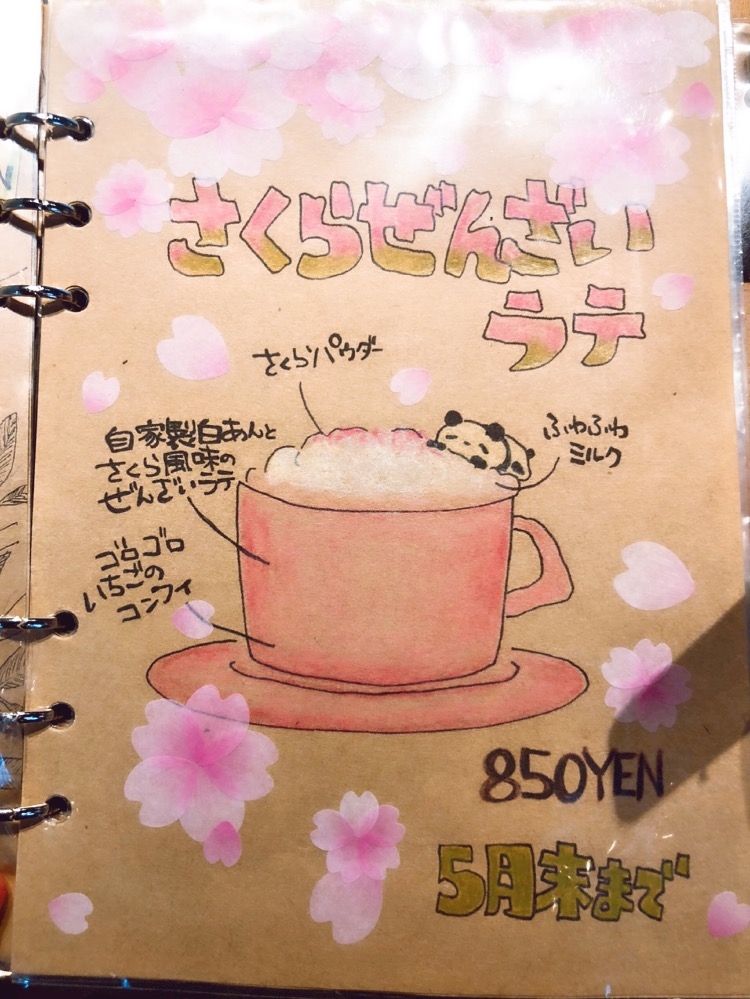 さくらぜんざい
ラテ
さくらパウダー
ふわふわ
ミルク
自家製白あんと
さくら風味の
ぜんざいラテ
ゴロゴロ
いちごの
コンフィ
850YEN
5月末まで